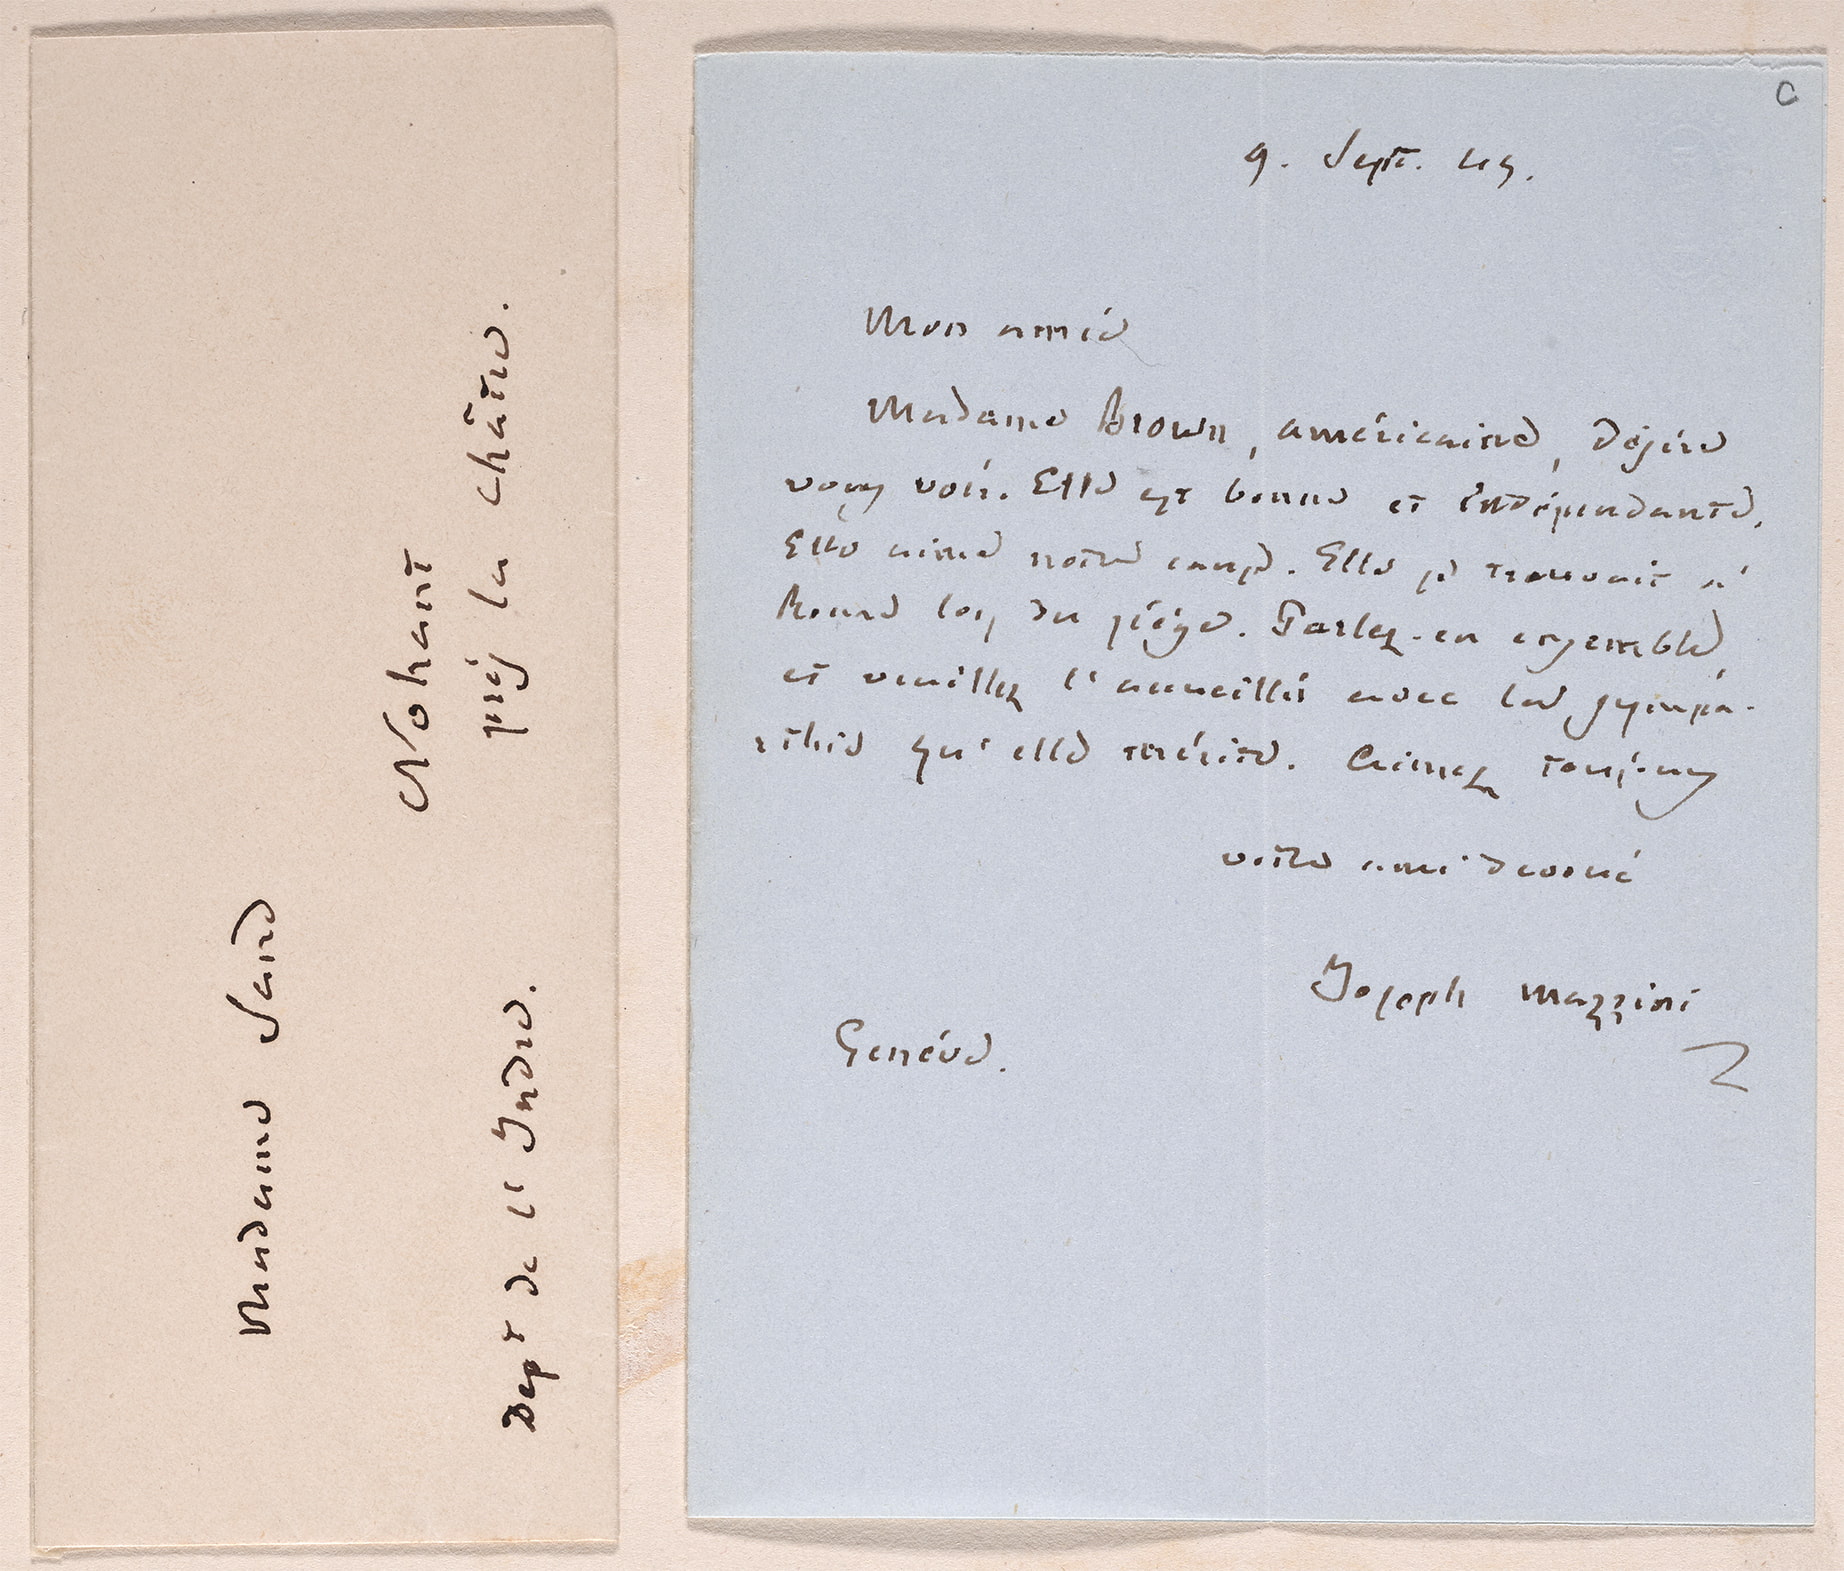 Madame Sand
Nohant
près la châtre.
Dept de l'Indre.
C
9. Sept. 49.
Mon amie
Madame Brown, américaine, désire
vous voir. Elle est bonne et indépendante.
Elle aime notre cause. Elle se trouvait à
Rome lors du siège. Parlez-en ensemble,
et veuillez l'accueillir avec la sympa-
thie qu'elle mérite. Aimez toujours
votre ami dévoué
Joseph Mazzini
Genève.